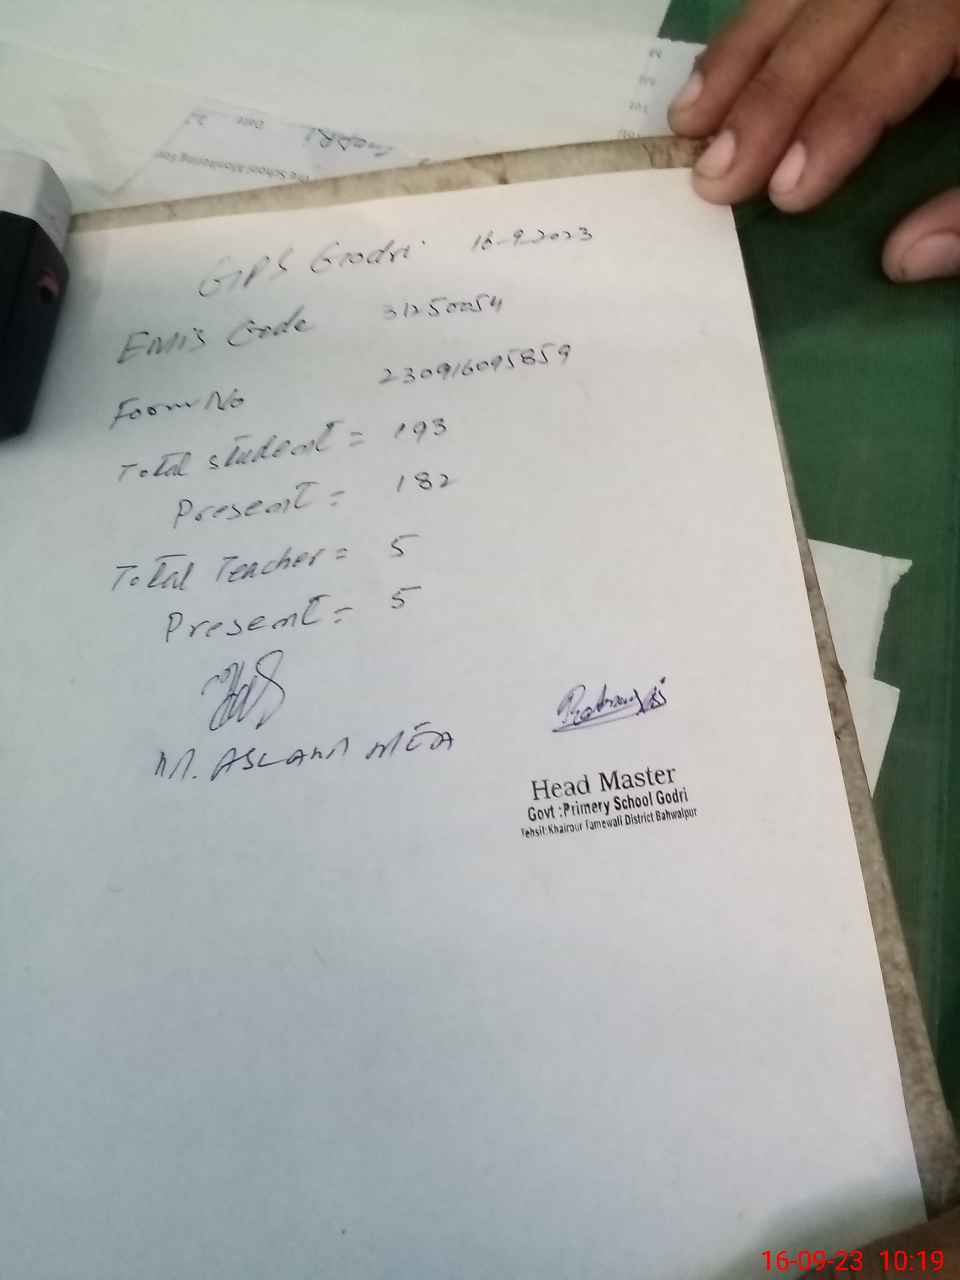 Date
GODRI
The School Monitoring For
GPS Godri 16-9-2023
EMIS Code 31250054
Foorm No 230916095859
Total student = 193
Present = 182
Total Teacher = 5
Present = 5
M. ASLAM MEA
Head Master
Govt :Primery School Godri
Tehsil: Khairpur Tamewali District Bahwalpur
16-09-23 10:19